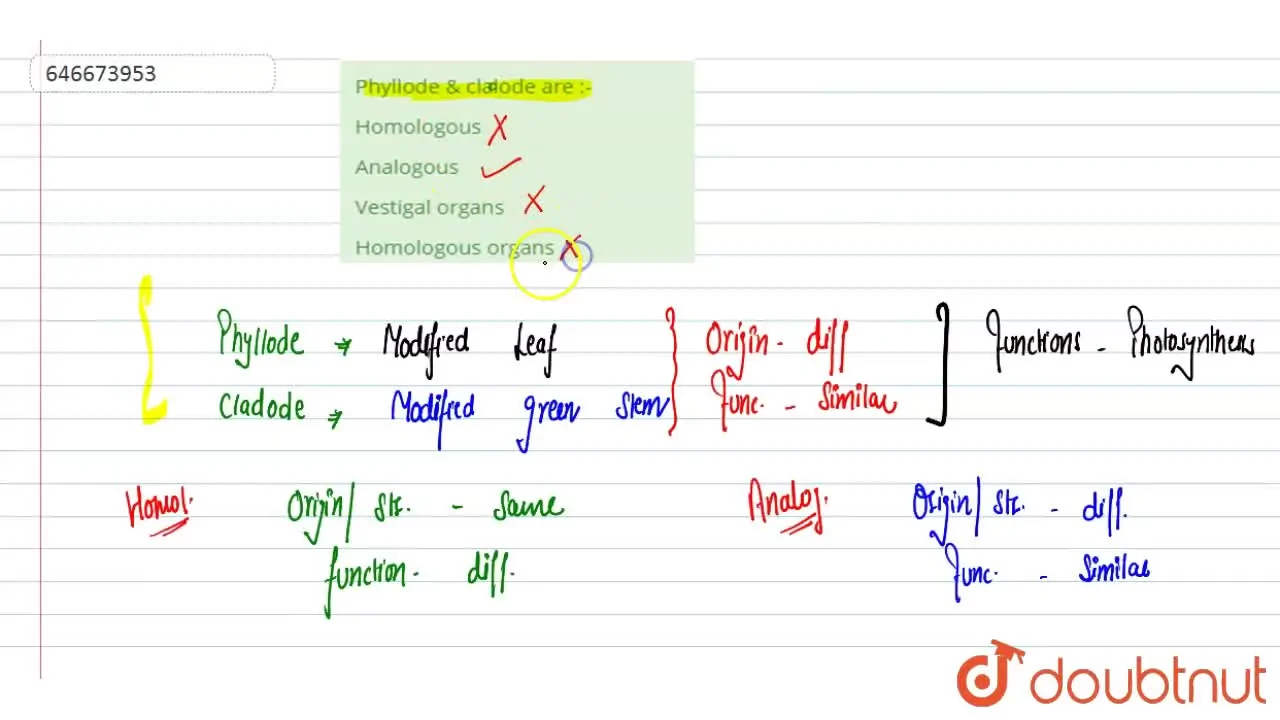 646673953
Phyllode & cladode are :-
Homologous
Analogous
Vestigal organs
Homologous organs
Phyllode → Modified Leaf Origin - diff Functions - Photosynthesis
Cladode → Modified green stem Func. - Similar
Homol. Origin/ Str. - Same Analog. Origin/ Str. - diff.
function - diff. Func. - Similar
doubtnut